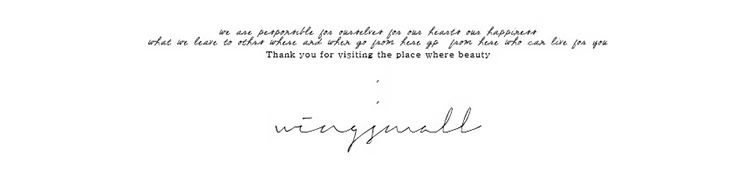 we are personible for ourselves for our hearts our happiness
what we leave to othrs where and when go from here gp from here who can live for you
Thank you for visiting the place where beauty
,
,
wingsmall